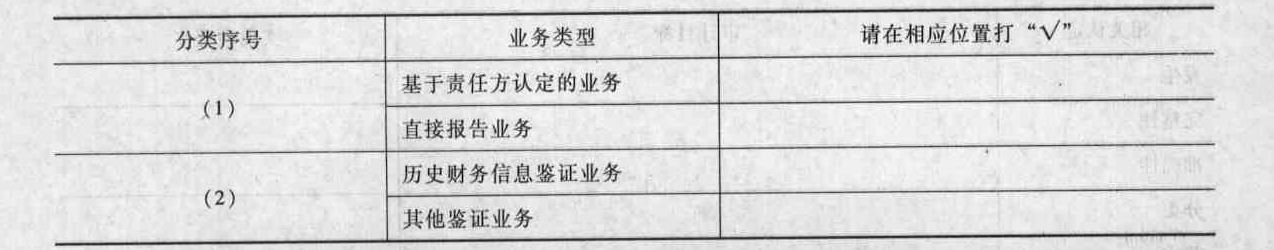 分类序号 业务类型 请在相应位置打“√”
(1) 基于责任方认定的业务
直接报告业务
(2) 历史财务信息鉴证业务
其他鉴证业务